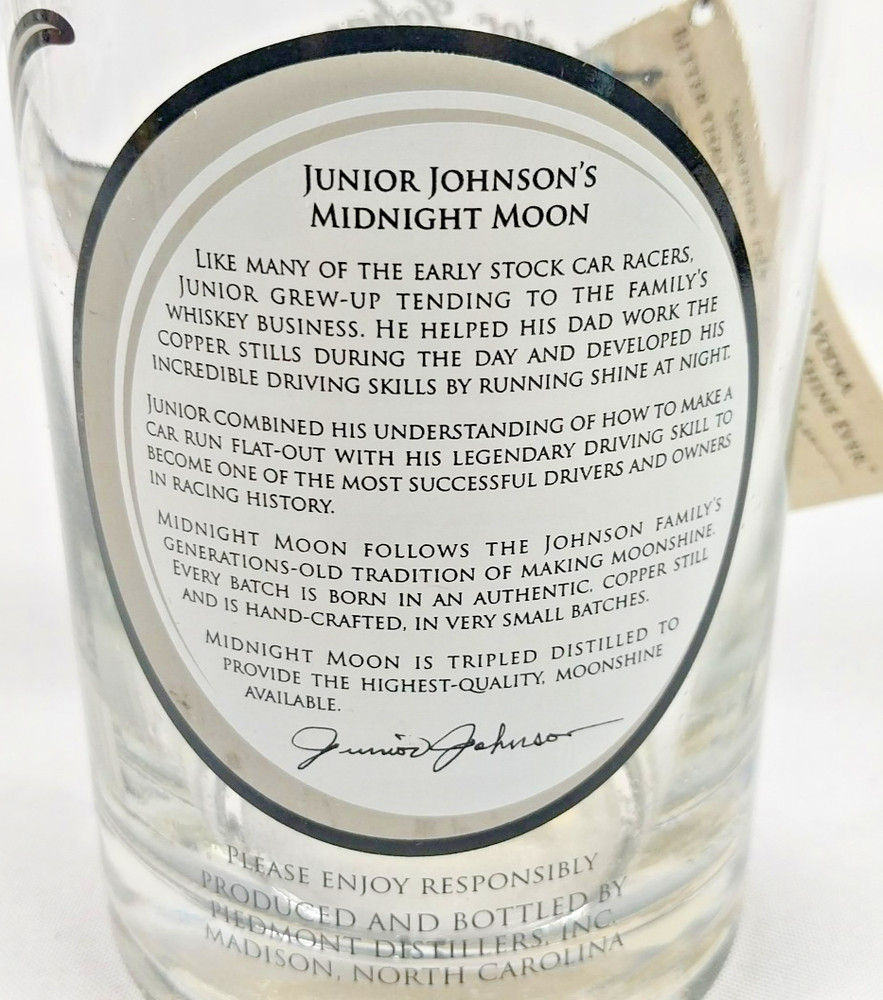 JUNIOR JOHNSON'S
MIDNIGHT MOON
LIKE MANY OF THE EARLY STOCK CAR RACERS,
JUNIOR GREW-UP TENDING TO THE FAMILY'S
WHISKEY BUSINESS. HE HELPED HIS DAD WORK THE
COPPER STILLS DURING THE DAY AND DEVELOPED HIS
INCREDIBLE DRIVING SKILLS BY RUNNING SHINE AT NIGHT.
JUNIOR COMBINED HIS UNDERSTANDING OF HOW TO MAKE A
CAR RUN FLAT-OUT WITH HIS LEGENDARY DRIVING SKILL TO
BECOME ONE OF THE MOST SUCCESSFUL DRIVERS AND OWNERS
IN RACING HISTORY.
MIDNIGHT MOON FOLLOWS THE JOHNSON FAMILY'S
GENERATIONS-OLD TRADITION OF MAKING MOONSHINE.
EVERY BATCH IS BORN IN AN AUTHENTIC, COPPER STILL
AND IS HAND-CRAFTED, IN VERY SMALL BATCHES.
MIDNIGHT MOON IS TRIPLED DISTILLED TO
PROVIDE THE HIGHEST-QUALITY, MOONSHINE
AVAILABLE.
Junior Johnson
PLEASE ENJOY RESPONSIBLY
PRODUCED AND BOTTLED BY
PIEDMONT DISTILLERS, INC.
MADISON, NORTH CAROLINA
VODKA
EVER."